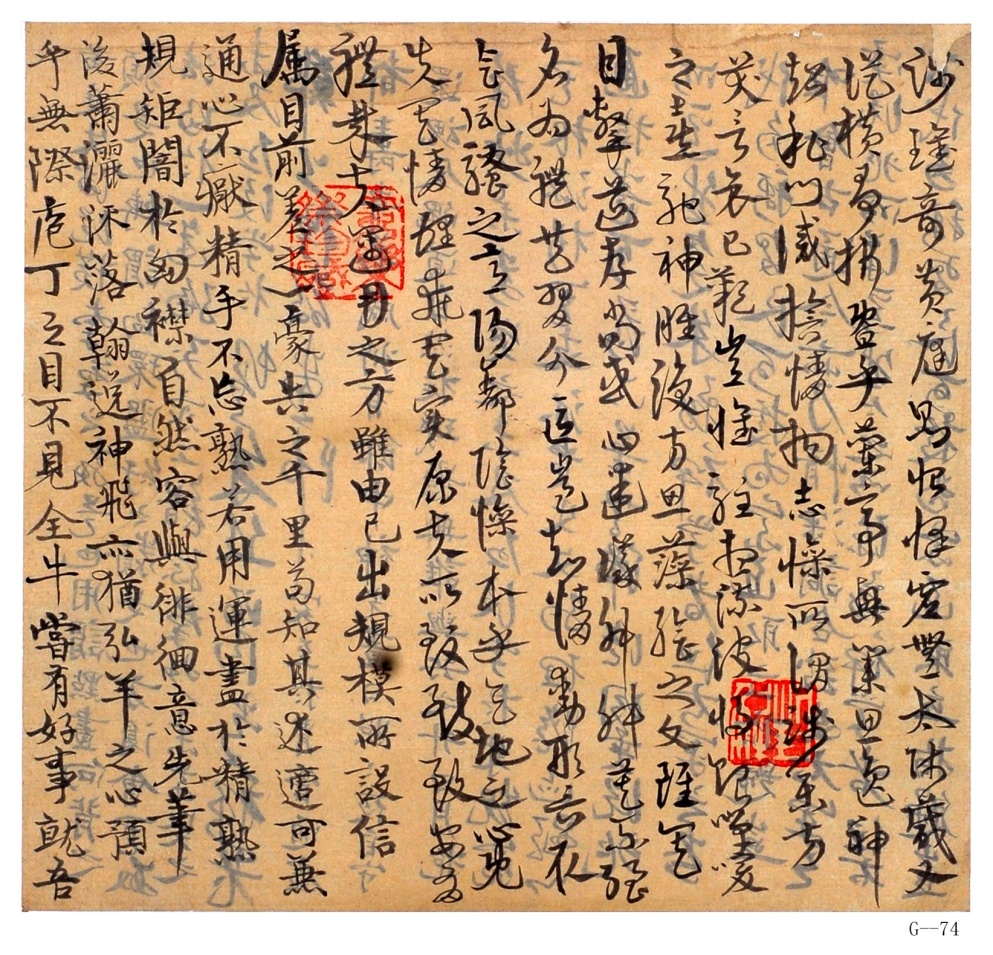 涉瓌奇黃庭則怡懌虛無太師箴又
從橫爭折暨乎蘭亭興集思逸神
超私門誡誓情拘志慘所謂涉樂方
笑言哀已歎豈惟駐想流波將貽嘽喛
之奏馳神睢渙方思藻繪之文雖其
目擊道存尚或心迷議舛舛莫不強
名為體共習分區豈知情動形言取
會風騷之意陽舒陰慘本乎天地之心既
失其情理乖其實原夫所致致致安有
體哉夫運用之方雖由己出規模所設信
屬目前差之一豪失之千里苟知其術適可兼
通心不厭精手不忘熟若用運盡於精熟
規矩闇於胸襟自然容與徘徊意先筆
後蕭灑流落翰逸神飛亦猶弘羊之心預
乎無際庖丁之目不見全牛嘗有好事就吾
G--74